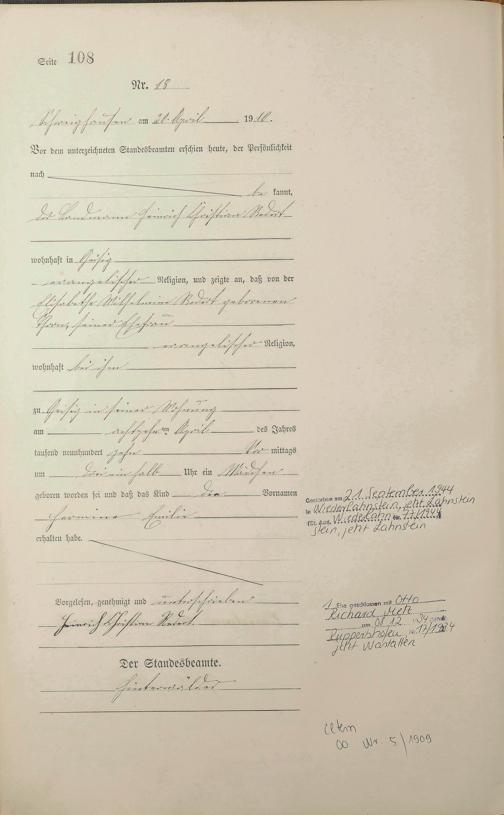 Seite 108
Nr. 18
Schweighausen am 20 April 1910.
Vor dem unterzeichneten Standesbeamten erschien heute, der Persönlichkeit
nach
be kannt,
der Landmann Heinrich Christian
wohnhaft in Geisig
evangelischer Religion, und zeigte an, daß von der
Elisabethe Wilhelmine geborenen
seiner Ehefrau
evangelischer Religion,
wohnhaft bei ihm
zu Geisig in seiner Wohnung
am achtzehnten April des Jahres
tausend neunhundert zehn Vor mittags
um drei ein halb Uhr ein Mädchen
geboren worden sei und daß das Kind die Vornamen
Hermine Emilie
erhalten habe.
Vorgelesen, genehmigt und unterschrieben
Heinrich Christian
Der Standesbeamte.
Hinterwälder
Gestorben am 21. September 1944
in Niederlahnstein, jetzt Lahnstein
Niederlahn
stein, jetzt Lahnstein
1. Ehe geschlossen mit Otto
Richard
am 08.12.
Ruppertshofen Nr.
jetzt
Eltern
∞ Nr. 5/1909